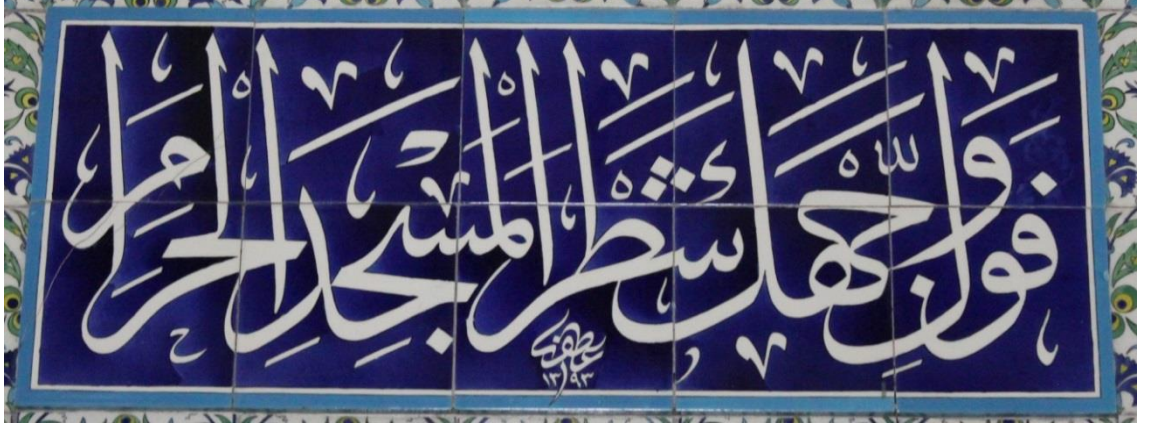 فَوَلِّ وَجْهَكَ شَطْرَ الْمَسْجِدِ الْحَرَامِ
١٣٩٣